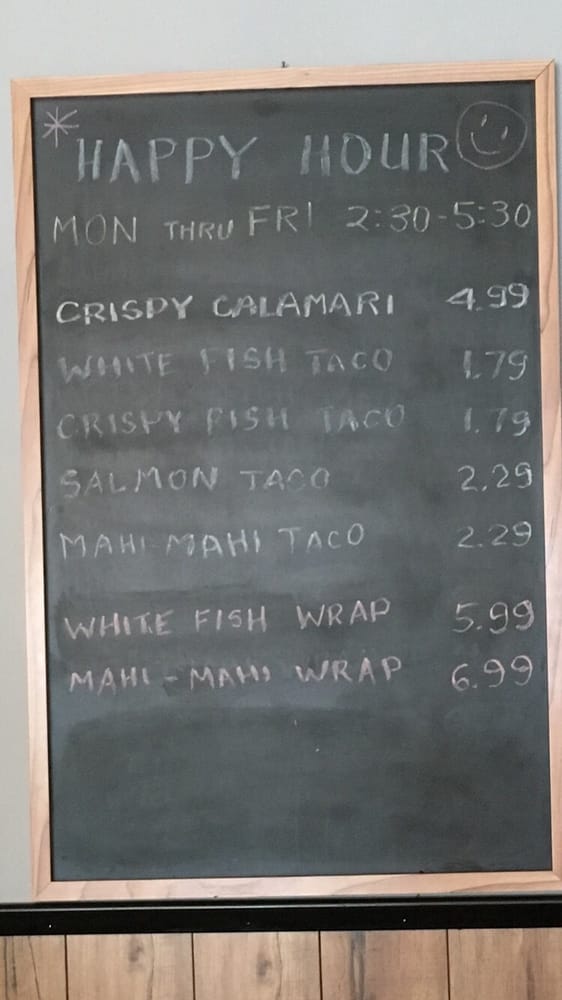 * HAPPY HOUR
MON THRU FRI 2:30-5:30
CRISPY CALAMARI 4.99
WHITE FISH TACO 1.79
CRISPY FISH TACO 1.79
SALMON TACO 2.29
MAHI-MAHI TACO 2.29
WHITE FISH WRAP 5.99
MAHI-MAHI WRAP 6.99